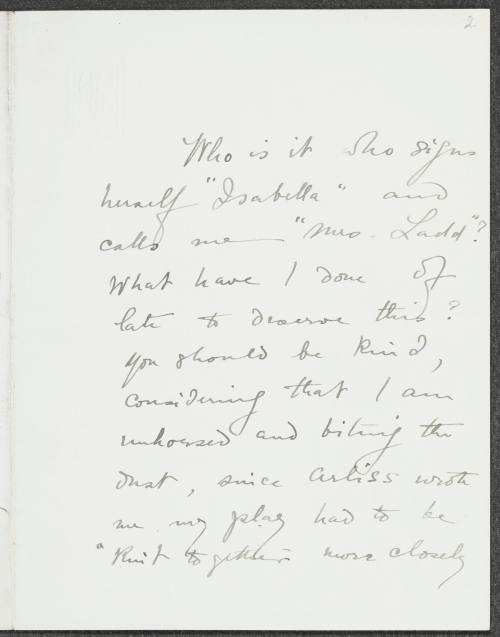 2.
Who is it who signs
herself "Isabella" and
calls me "Mrs. Ladd"?
What have I done of
late to deserve this?
You should be kind,
considering that I am
unhorsed and biting the
dust, since Arliss wrote
me my play had to be
"knit together more closely